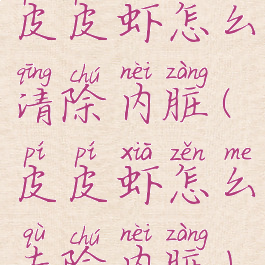 皮皮虾怎么
qīng chú nèi zàng
清除内脏(
pí pí xiā zěn me
皮皮虾怎么
qù chú nèi zàng
去除内脏)